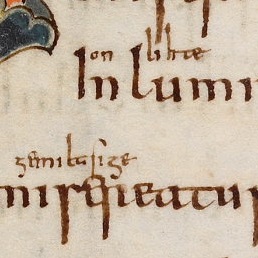 on lihte
In lumi
gemiltsige
misereatur